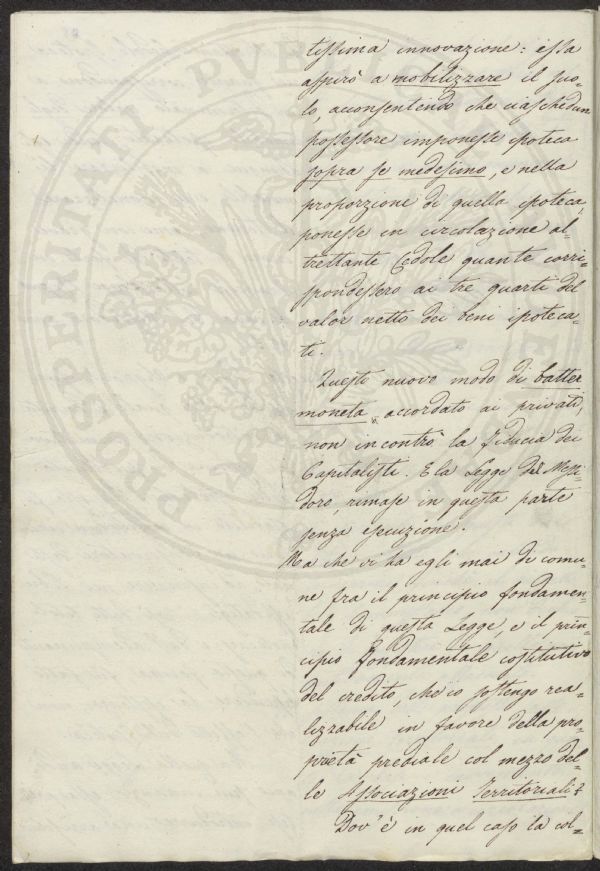 tissima innovazione: essa
aspirò a mobilizzare il suo=
lo, acconsentendo che ciaschedun
possessore imponesse ipoteca
sopra se medesimo, e nella
proporzione di quella ipoteca,
ponesse in circolazione al=
trettante Cedole quante corri=
spondessero ai tre quarti del
valor netto dei beni ipoteca=
ti.
Questo nuovo modo di batter
moneta, accordato ai privati,
non incontrò la fiducia dei
Capitalisti. E la Legge del Messi=
doro, rimase in questa parte
senza esecuzione.
Ma che vi ha egli mai di comu=
ne fra il principio fondamen=
tale di questa Legge, e il prin=
cipio fondamentale costitutivo
del credito, che io sostengo rea=
lizzabile in favore della pro=
prietà prediale col mezzo del=
le Associazioni Territoriali?
Dov'è in quel caso la col=
PROSPERITATI PVBLICAE